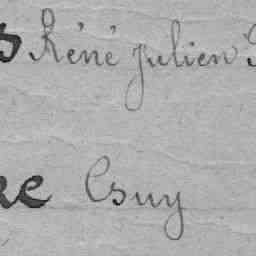 s Réné Julien
re Csuy